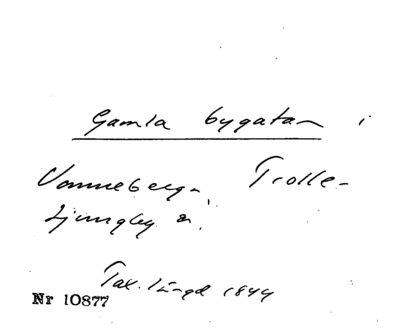 Gamla bygatan i
Vanneberga, Trolle-
Ljungby s.
Tax.längd 1844
Nr 10877